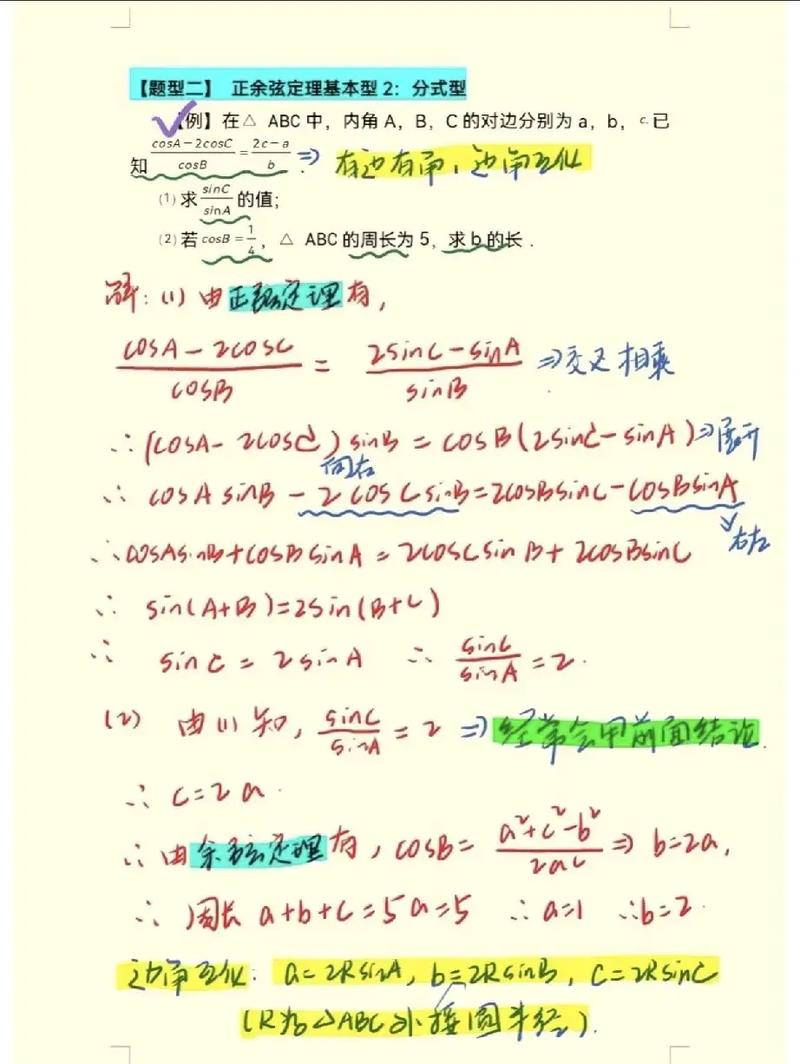 【题型二】 正余弦定理基本型 2：分式型
【例】在△ ABC 中，内角 A，B，C 的对边分别为 a，b，c.已
知 (cosA−2cosC)/cosB = (2c−a)/b . ⇒ 有边有角，边角互化
(1) 求 sinC/sinA 的值；
(2) 若 cosB = 1/4，△ ABC 的周长为 5，求 b 的长．
解：(1) 由正弦定理有，
(cosA − 2cosC)/cosB = (2sinC − sinA)/sinB ⇒ 交叉相乘
∴ (cosA − 2cosC) sinB = cosB(2sinC − sinA) ⇒ 展开
向右
∴ cosA sinB − 2cosC sinB = 2cosBsinC − cosBsinA
∴ cosAsinB + cosBsinA = 2cosCsinB + 2cosBsinC
∴ sin(A+B) = 2sin(B+C)
∴ sinC = 2sinA ∴ sinC/sinA = 2.
(2) 由(1)知，sinC/sinA = 2 ⇒ 经常会用前面结论.
∴ c = 2a.
∴ 由余弦定理有，cosB = (a²+c²−b²)/2ac ⇒ b=2a,
∴ 周长 a+b+c = 5a = 5 ∴ a=1 ∴ b=2.
边角互化：a=2RsinA, b=2RsinB, c=2RsinC
(R为△ABC外接圆半径).